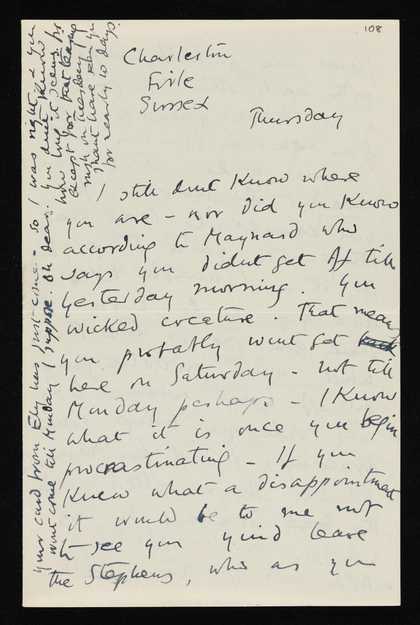 108
Charleston
Firle
Sussex
Thursday
I still dont know where
you are – nor did you know
according to Maynard who
says you didnt get off till
yesterday morning. You
wicked creature. That means
you probably wont get back
here on Saturday – not till
Monday perhaps – I know
what it is once you begin
procrastinating – If you
knew what a disappointment
it would be to me not
to see you you'd leave
the Stephens, who as you
your card from Ely has just come – so I was right & you
wont come till Monday I suppose. Oh dear. You dont know
how long it seems for
except for that teatime
rush on Monday I
shant have seen you
for nearly 10 days.